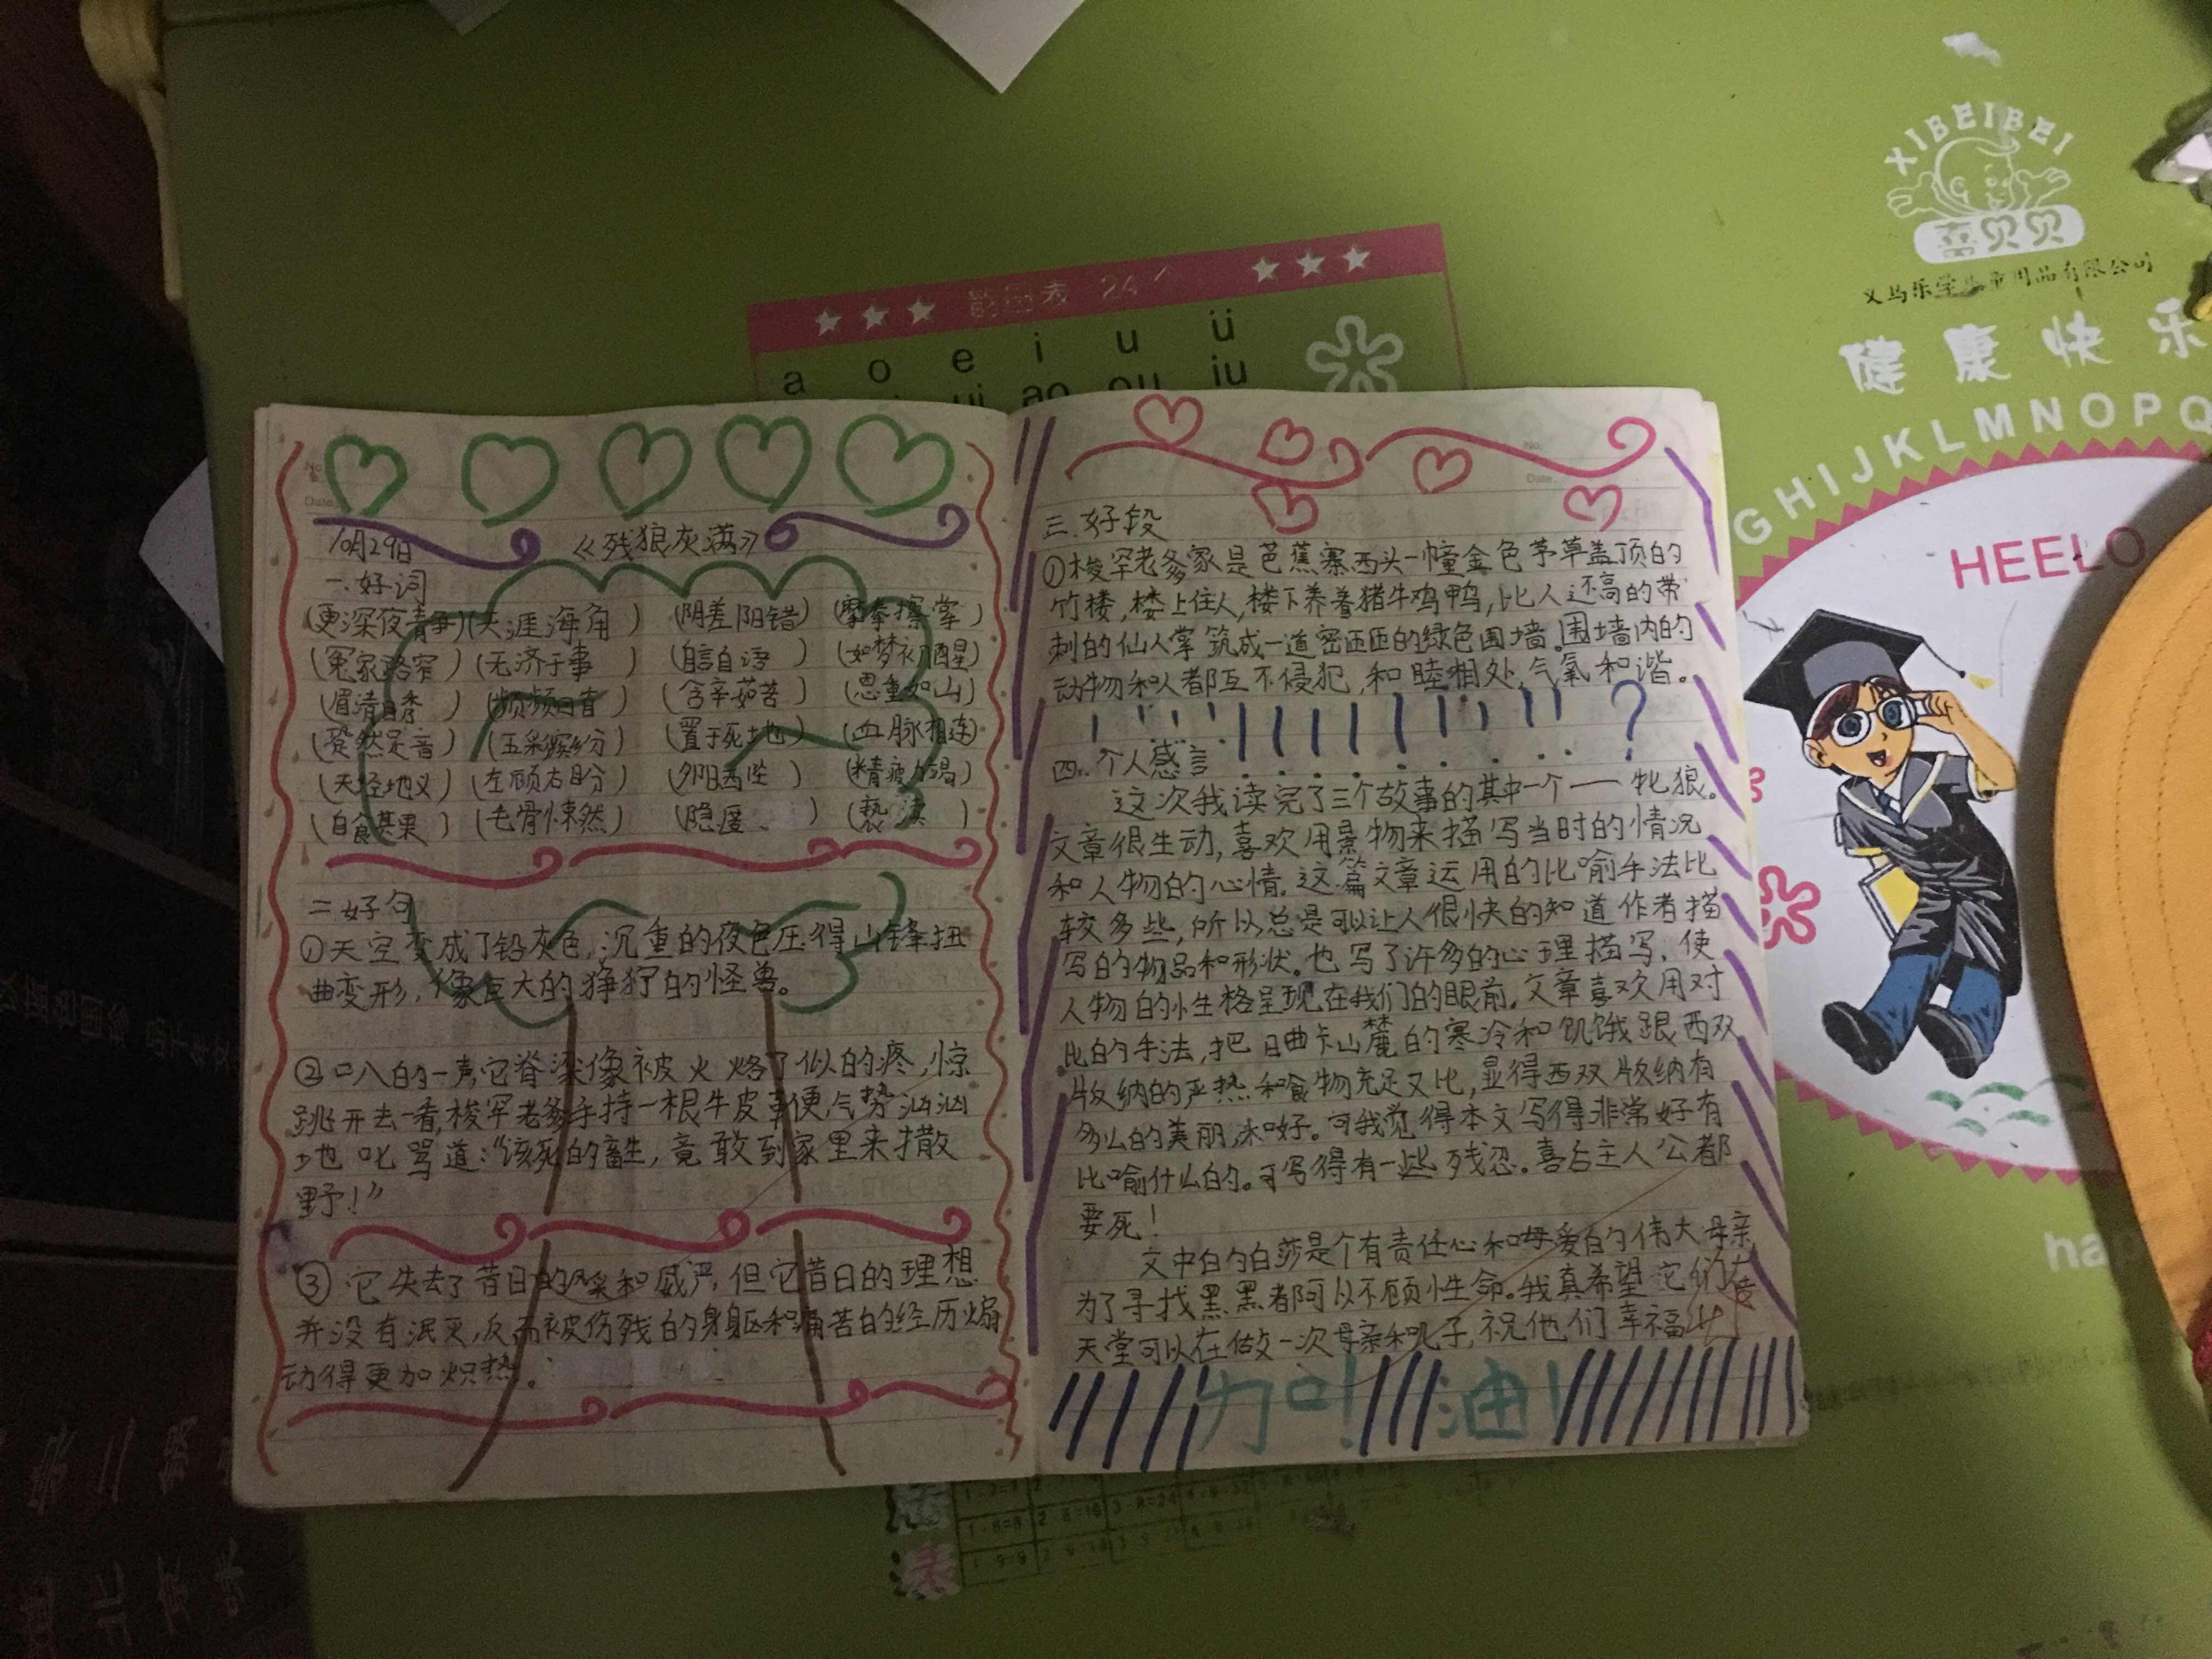 XIBEIBEI
喜贝贝
健康快乐
GHIJKLMNOPQ
HEELO
韵母表 24个
a o e i u ü
ui ao ou iu
10月29日 《残狼灰满》
一.好词
(更深夜静)(天涯海角) (阴差阳错) (摩拳擦掌)
(冤家路窄) (无济于事) (自言自语) (如梦初醒)
(眉清目秀) (含辛茹苦) (恩重如山)
(跫然足音) (五彩缤纷) (置于死地) (血脉相连)
(天经地义) (左顾右盼) (夕阳西坠) (精疲力竭)
(自食其果) (毛骨悚然) (隐匿) (亵渎)
二好句
①天空变成了铅灰色,沉重的夜色压得山锋扭
曲变形,像巨大的狰狞的怪兽。
②叭的一声,它脊梁像被火烙了似的疼,惊
跳开去一看,梭罕老爹手持一根牛皮 气势汹汹
地叱骂道:“该死的畜生,竟敢到家里来撒
野!”
③它失去了昔日的 和威严,但它昔日的理想
并没有泯灭,反而被伤残的身躯和痛苦的经历煽
动得更加炽热。
三.好段
①梭罕老爹家是芭蕉寨西头一幢金色茅草盖顶的
竹楼,楼上住人,楼下养着猪牛鸡鸭,比人还高的带
刺的仙人掌筑成一道密匝匝的绿色围墙。围墙内的
动物和人都互不侵犯,和睦相处,气氛和谐。
?
四.个人感言
这次我读完了三个故事的其中一个——牝狼。
文章很生动,喜欢用景物来描写当时的情况
和人物的心情。这篇文章运用的比喻手法比
较多些,所以总是可以让人很快的知道作者描
写的物品和形状。也写了许多的心理描写,使
人物的性格呈现在我们的眼前。文章喜欢用对
比的手法,把日曲卡山麓的寒冷和饥饿跟西双
版纳的严热和食物充足又比,显得西双版纳有
多么的美丽,和好。可我觉得本文写得非常好有
比喻什么的。可写得有一些残忍。喜后主人公都
要死!
文中的白莎是个有责任心和母爱的伟大母亲
为了寻找黑黑都阿以不顾性命。我真希望它们在
天堂可以在做一次母亲和儿子,祝他们幸福
加油!